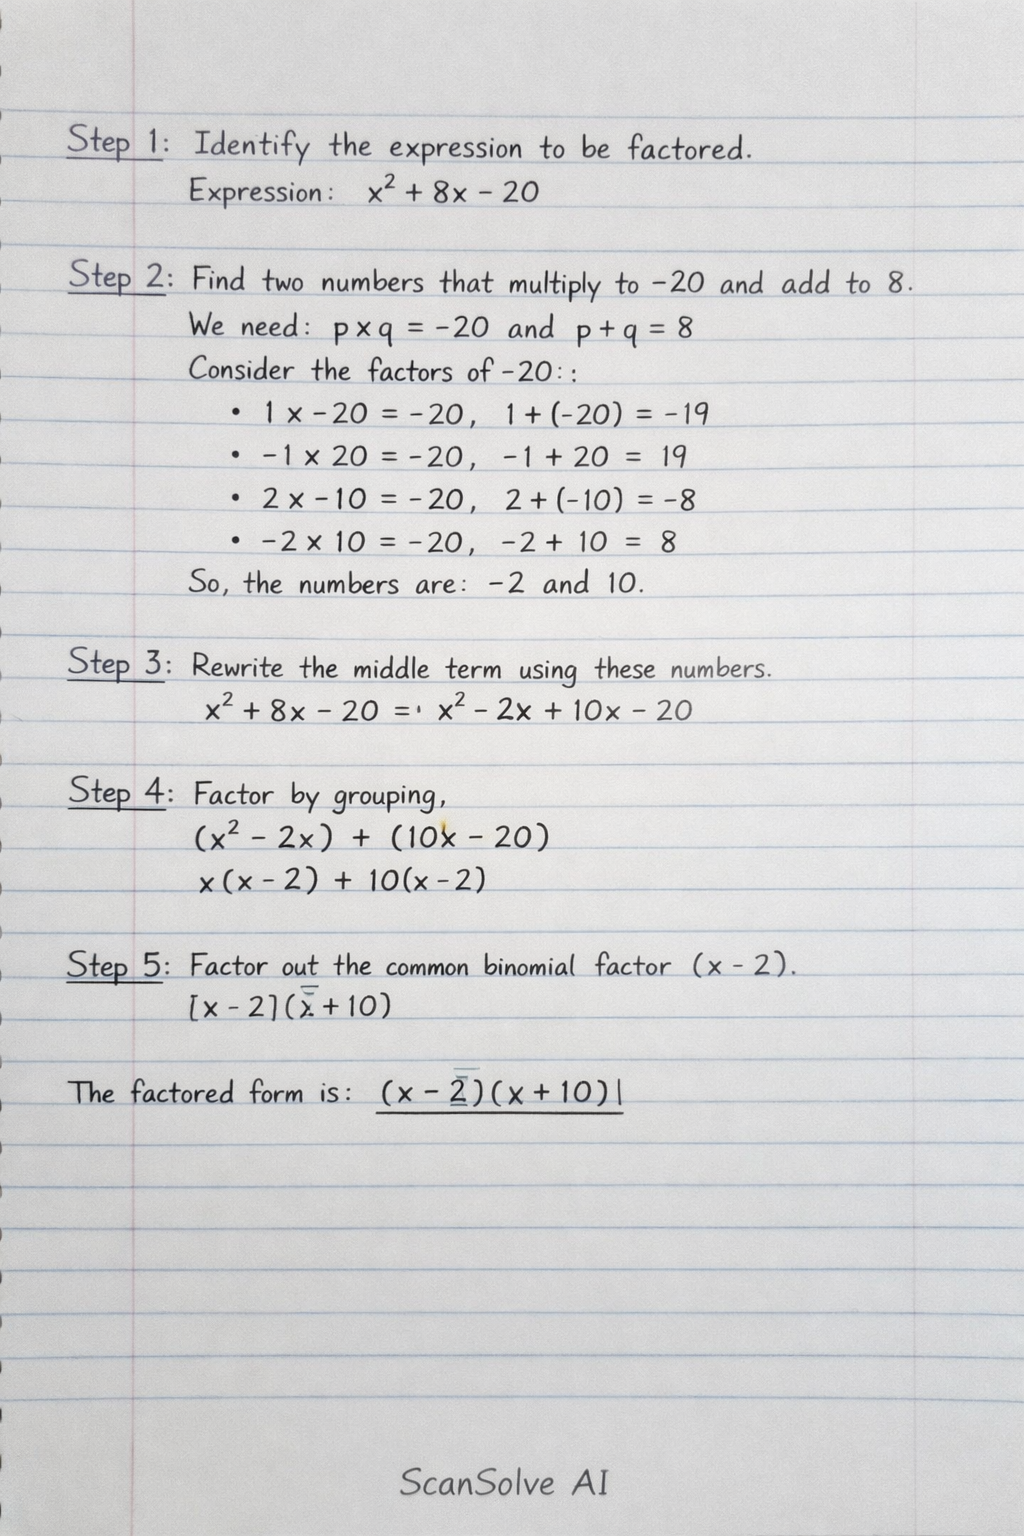 Step 1: Identify the expression to be factored.
Expression: x² + 8x - 20
Step 2: Find two numbers that multiply to -20 and add to 8.
We need: p x q = -20 and p + q = 8
Consider the factors of -20::
• 1 x -20 = -20, 1 + (-20) = -19
• -1 x 20 = -20, -1 + 20 = 19
• 2 x -10 = -20, 2 + (-10) = -8
• -2 x 10 = -20, -2 + 10 = 8
So, the numbers are: -2 and 10.
Step 3: Rewrite the middle term using these numbers.
x² + 8x - 20 =· x² - 2x + 10x - 20
Step 4: Factor by grouping,
(x² - 2x) + (10x - 20)
x(x - 2) + 10(x - 2)
Step 5: Factor out the common binomial factor (x - 2).
[x - 2](x + 10)
The factored form is: (x - 2)(x + 10)|
ScanSolve AI